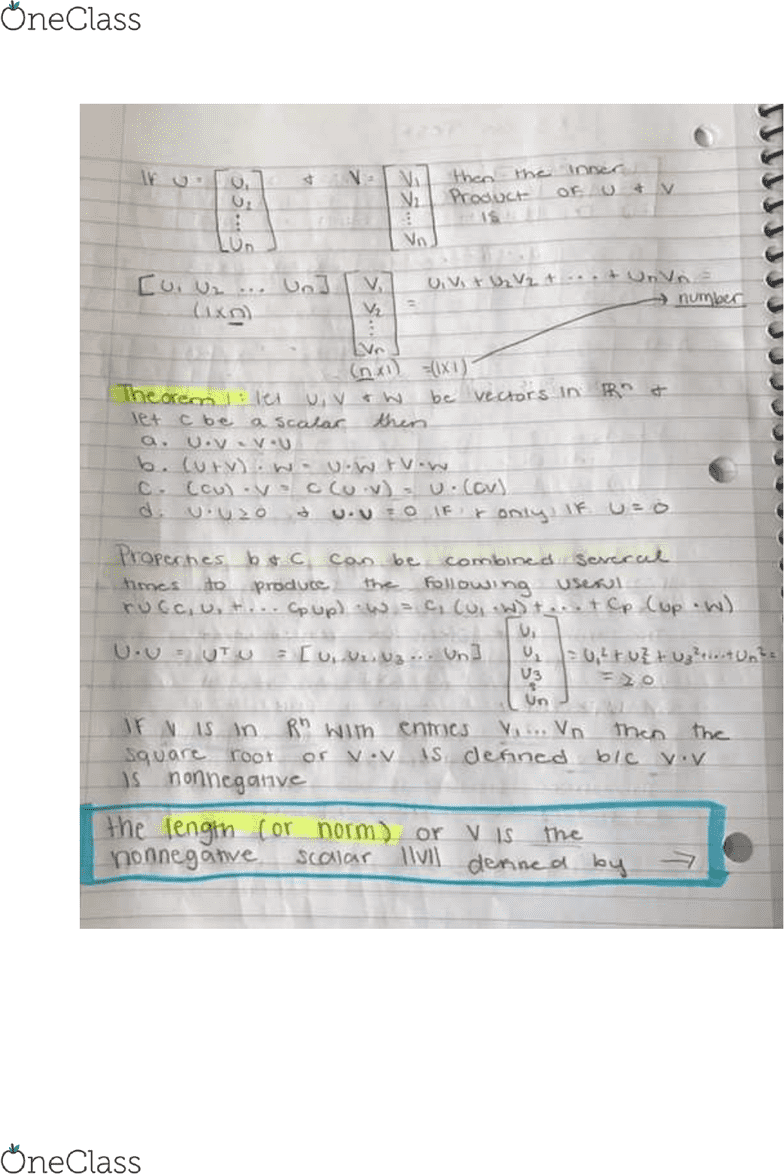 OneClass
If u = [u₁ u₂ ⋮ un] & v = [v₁ v₂ ⋮ vn] then the inner
Product of u & v
is
[u₁ u₂ ... un] [v₁ v₂ ⋮ vn] = u₁v₁ + u₂v₂ + ... + unvn =
(1xn) → number
(nx1) =(1x1)
Theorem 1: let u, v & w be vectors in ℝⁿ &
let c be a scalar then
a. u·v = v·u
b. (u+v)·w = u·w + v·w
c. (cu)·v = c(u·v) = u·(cv)
d. u·u≥0 & u·u = 0 if & only if u = 0
Properties b & c can be combined several
times to produce the following useful
(c₁u₁ + ... cpup)·w = c₁(u₁·w) + ... + cp(up·w)
u·u = uᵀu = [u₁, u₂, u₃ ... un] [u₁ u₂ u₃ ⋮ un] = u₁² + u₂² + u₃² + ... + un² =
= ≥ 0
If v is in ℝⁿ with entries v₁ ... vn then the
square root of v·v is defined b/c v·v
is nonnegative
the length (or norm) of v is the
nonnegative scalar ||v|| defined by →
OneClass